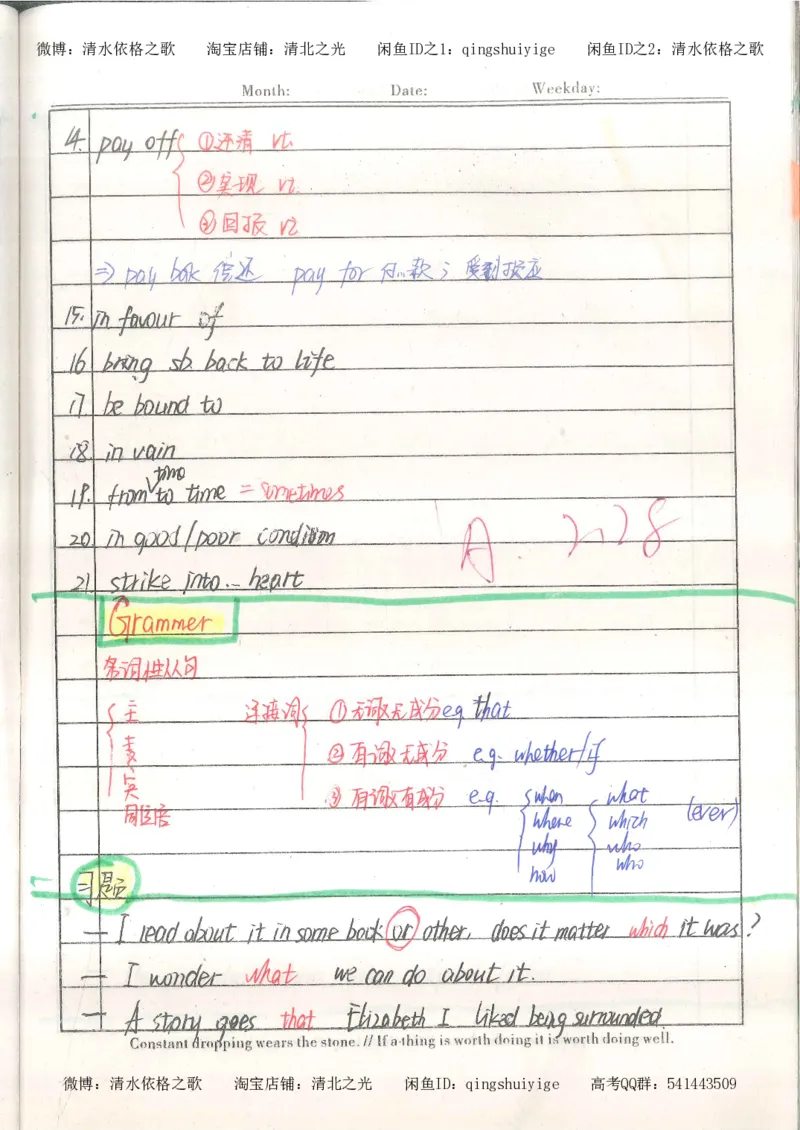 微博：清水依格之歌 淘宝店铺：清北之光 闲鱼ID之1：qingshuiyige 闲鱼ID之2：清水依格之歌
Month: Date: Weekday:
14. pay off ①还清 vt.
②实现 vt.
③回报 vi
⇒ pay bak 偿还 pay for 付…款；受到报应
15. in favour of
16 bring sb. back to life
17. be bound to
18. in vain
19. from time to time = sometimes
20. in good/poor condition
21. strike into… heart
A. 2.28
Grammer
名词性从句
主 连接词 ①无词义无成分 eg. that
表 ②有词义无成分 e.g. whether/if
宾 ③有词义有成分 e.g. when what (ever)
同位语 where which
why who
how who
习题
— I read about it in some book or other, does it matter which it was?
— I wonder what we can do about it.
— A story goes that Elizabeth I liked being surrounded
Constant dropping wears the stone. // If a thing is worth doing it is worth doing well.
微博：清水依格之歌 淘宝店铺：清北之光 闲鱼ID：qingshuiyige 高考QQ群：541443509